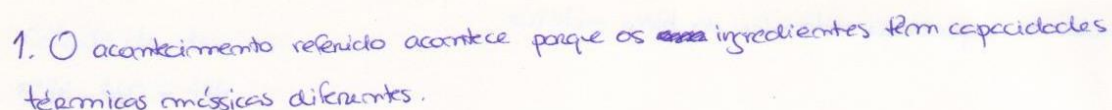 1. O acontecimento referido acontece porque os ingredientes têm capacidades
térmicas mássicas diferentes.